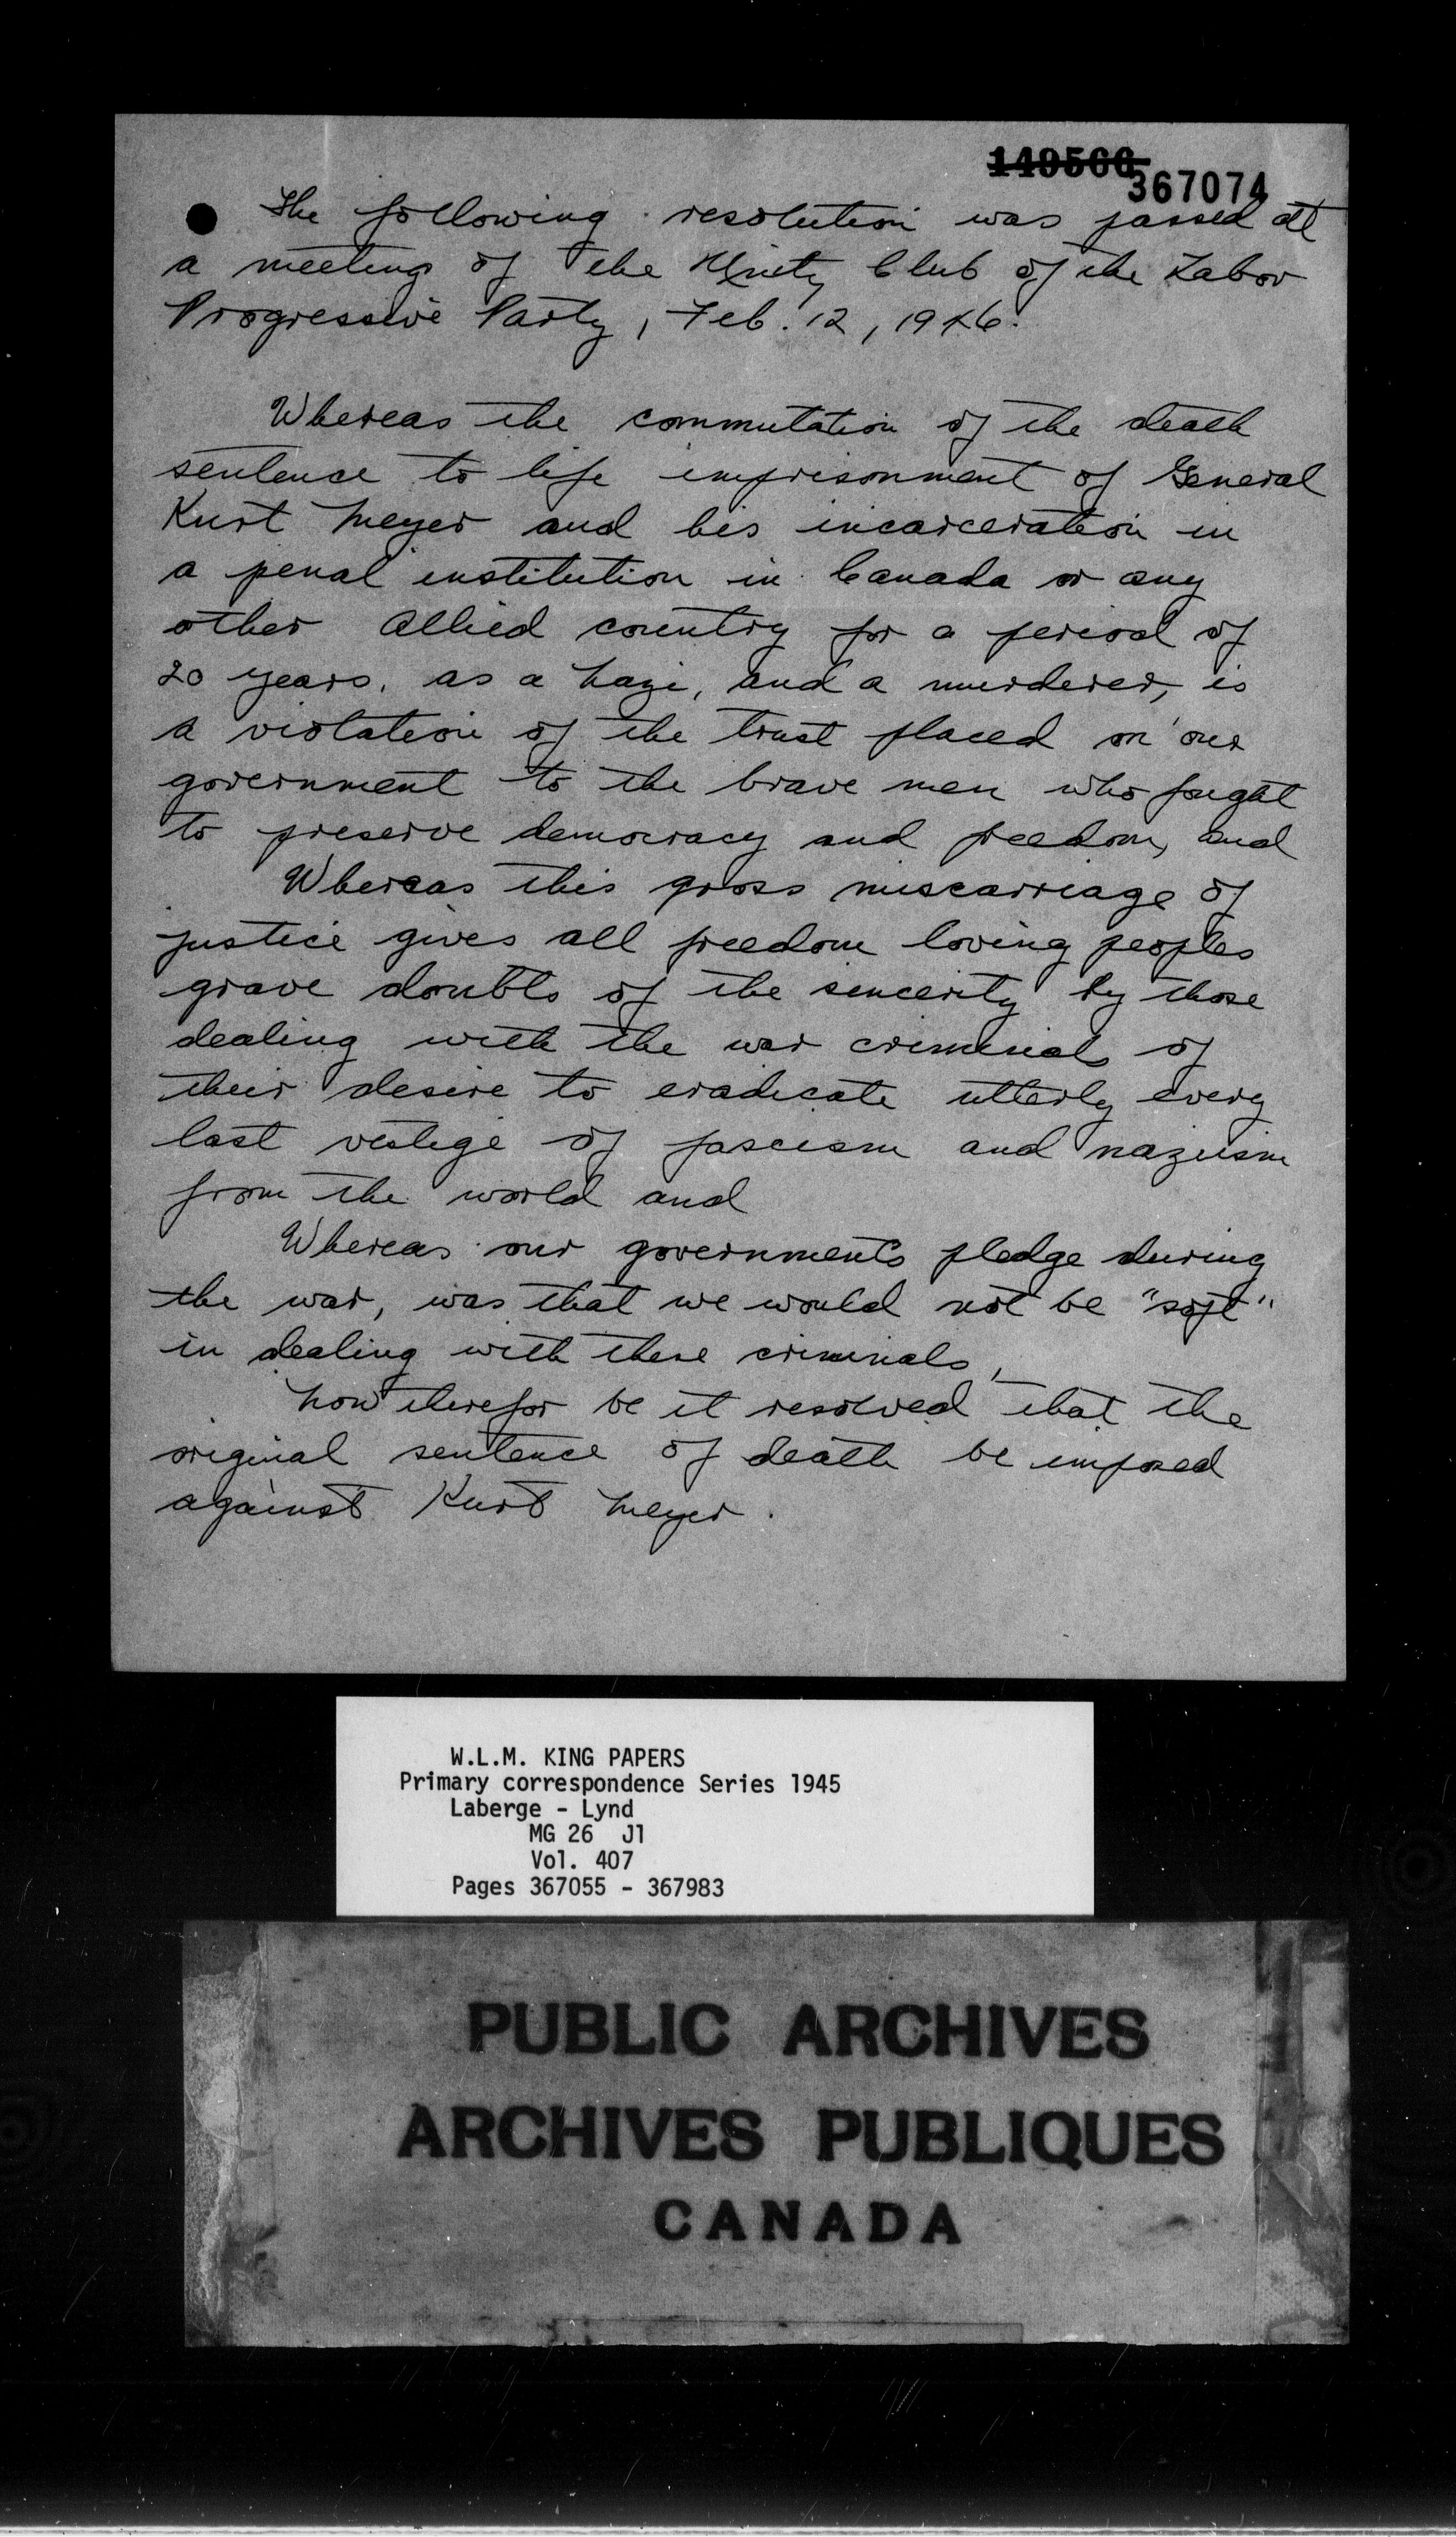 149566
367074
The following resolution was passed at
a meeting of the Unity Club of the Labor
Progressive Party, Feb. 12, 1946.
Whereas the commutation of the death
sentence to life imprisonment of General
Kurt Meyer and his incarceration in
a penal institution in Canada or any
other Allied country for a period of
20 years, as a Nazi, and a murderer, is
a violation of the trust placed on our
government to the brave men who fought
to preserve democracy and freedom, and
Whereas this gross miscarriage of
justice gives all freedom loving peoples
grave doubts of the sincerity by those
dealing with the war criminals of
their desire to eradicate utterly every
last vestige of fascism and naziism
from the world and
Whereas our governments pledge during
the war, was that we would not be "soft"
in dealing with these criminals,
Now therefor be it resolved that the
original sentence of death be imposed
against Kurt Meyer.
W.L.M. KING PAPERS
Primary correspondence Series 1945
Laberge - Lynd
MG 26 J1
Vol. 407
Pages 367055 - 367983
PUBLIC ARCHIVES
ARCHIVES PUBLIQUES
CANADA